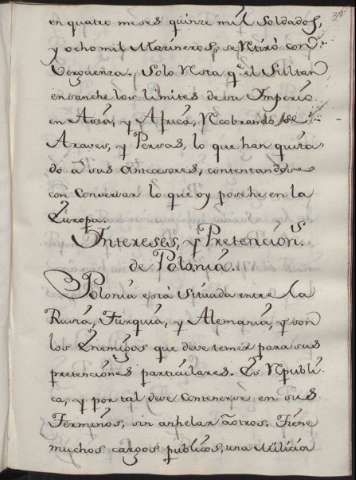 en quatro meses quinze mil Soldados,
y ocho mil Marineros, se Retiró con
Verguenza. Solo Resta q.e el Sultan
ensanche los limites de su Imperio
en Assia, y Africa, Recobrando de
Araves, y Persas, lo que han quita-
do a sus Antecesores, contentandose
con conservar lo que oy posehe en la
Europa.
Intereses, y Pretención.s
de Polonia.
Polonia está situada entre la
Rusia, Turquia, y Alemania, y son
los Enemigos que deve temer para sus
pretenciones particulares. Es Republi-
ca, y por tal deve contenerse en sus
Terminos, sin anhelar à otros. Tiene
muchos cargos publicos, una Milicia